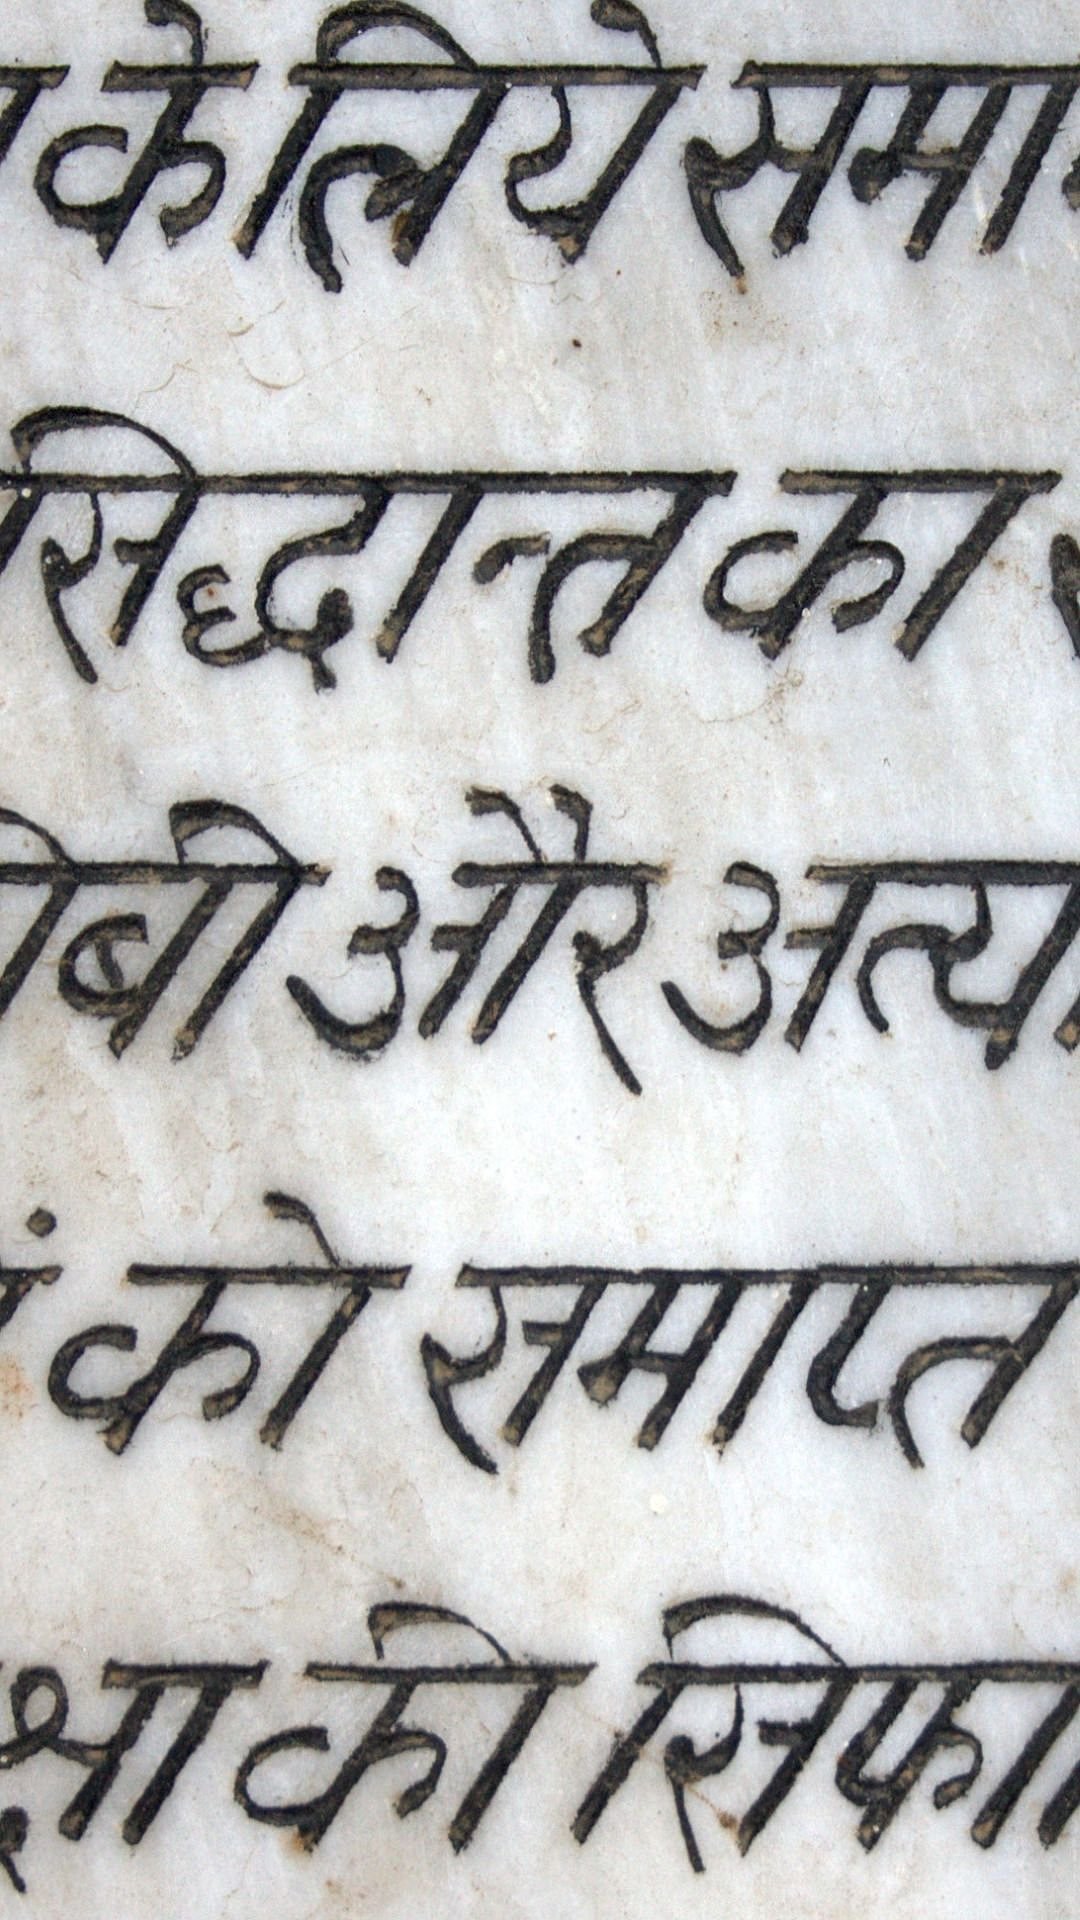 के लिये समा
सिद्धान्त का
बी और अत्या
को समाप्त
क्षा की सिफा